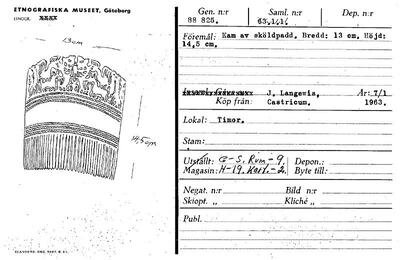 ETNOGRAFISKA MUSEET, Göteborg
LINGGR. XXXX
13cm
14,5cm
Gen. n:r
88 825.
Saml. n:r
63.14.14
Dep. n:r
Föremål: Kam av sköldpadd. Bredd: 13 cm. Höjd:
14,5 cm.
J. Langewis, År: 7/1
Köp från: Castricum. 1963.
Lokal: Timor.
Stam:
Utställt: G-S. Rum-9. Depon.:
Magasin: H-19. Kart.-2. Byte till:
Negat. n:r Bild n:r
Skiopt. n:r Kliché n:r
Publ.